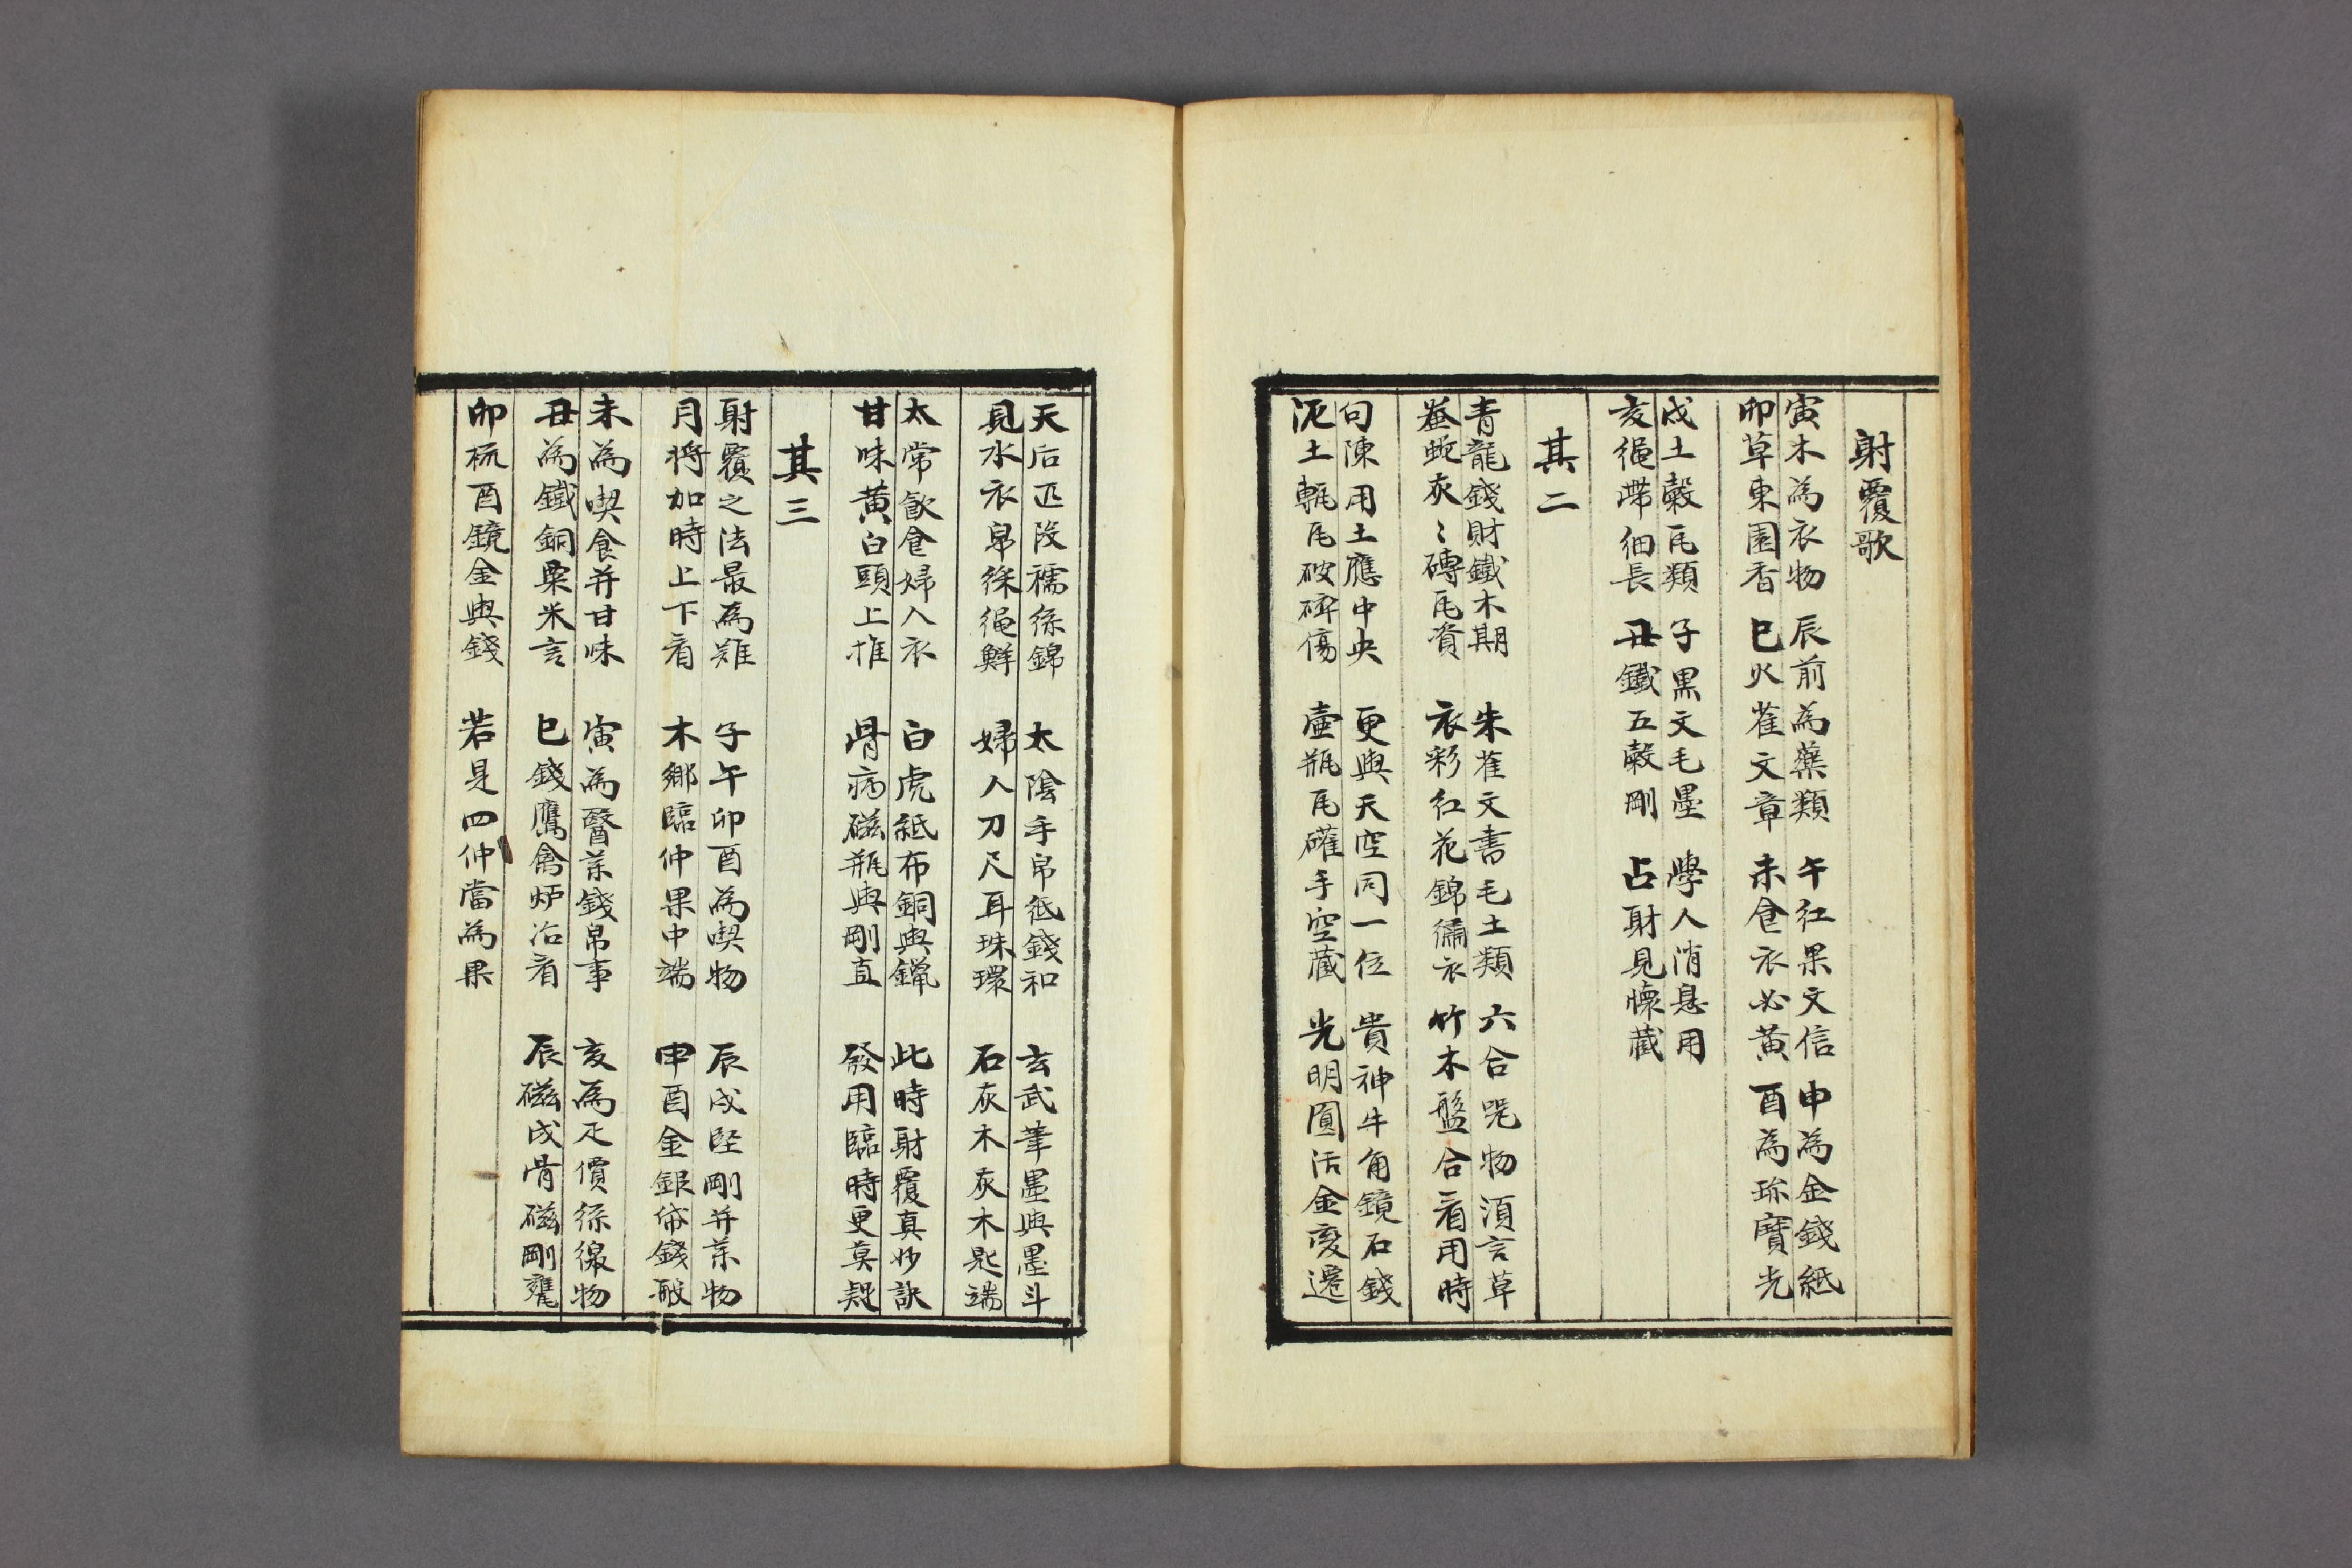 射覆歌
寅木為衣物 辰前為藥類 午红果文信 申為金錢紙
卯草東園香 巳火雀文章 未食衣必黄 酉為珎寶光
戌土穀瓦類 子黒文毛墨 學人消息用
亥繩帶細長 丑鐵五穀剛 占財見懷藏
其二
青龍錢財鐵木期 朱雀文書毛土類 六合咒物須言草
蛇灰〻磚瓦資 衣彩红花錦繡衣 竹木盤合看用時
勾陳用土應中央 更與天空同一位 貴神牛角鏡石錢
泥土甎瓦破碎傷 壷瓶瓦礶手空藏 光明圓活金变遷
天后疋段襦絲錦 太陰手帛紙錢和 玄武筆墨與墨斗
見水衣帛絲繩鮮 婦人刀尺耳珠環 石灰木灰木匙端
太常飲食婦人衣 白虎紙布銅與鑞 此時射覆真妙訣
甘味黄白頭上推 骨病磁瓶與剛直 發用臨時更莫疑
其三
射覆之法最為難 子午卯酉為喫物 辰戌坚剛并菜物
月将加時上下看 木鄉臨仲果中端 申酉金銀俗錢酸
未為喫食并甘味 寅為醫菜錢帛事 亥為疋價絲線物
丑為鐵銅粟米言 巳錢鷹禽炉冶看 辰磁戌骨磁剛甕
卯梳酉鏡金與錢 若是四仲當為果